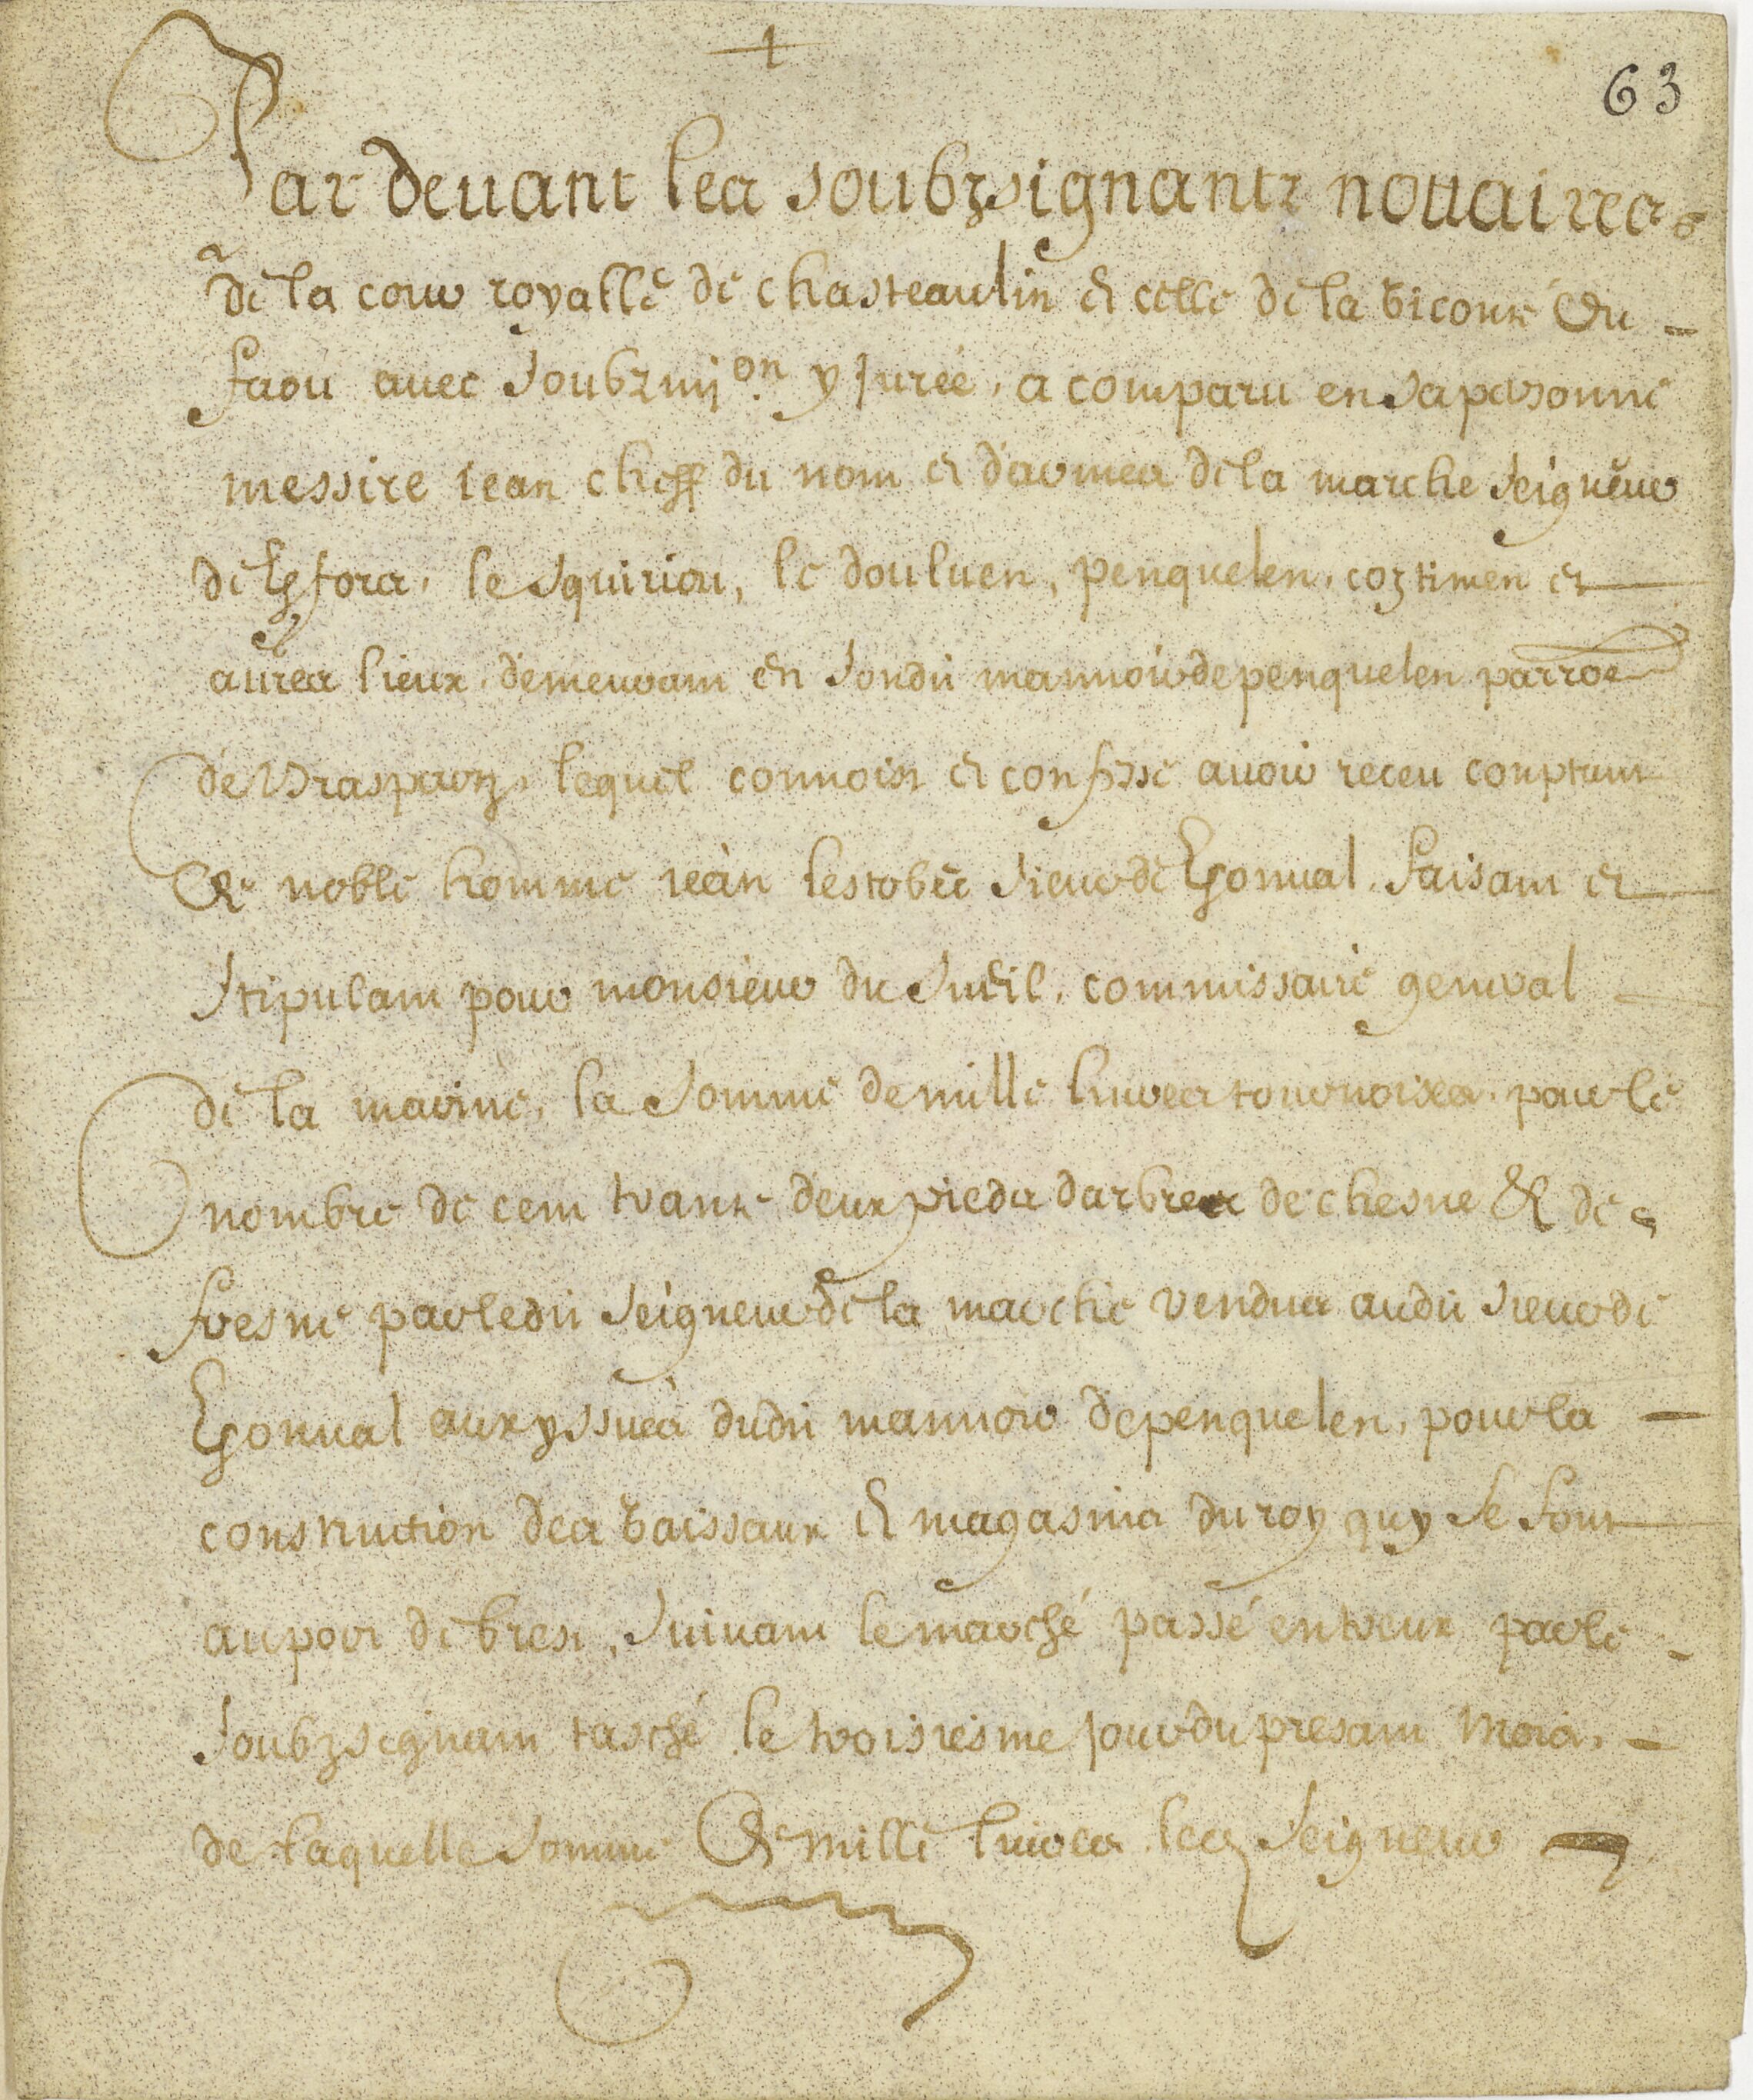 +
63
Par devant les soubzsignants nottaires
de la cour royalle de chasteaulin et celle de la viconté du
faou avec soubzmion y jurée, a comparu en sa personne
messire jean cheff du nom et d'armes de la marche seigneur
de K/fors, le squiriou, le douluen, penquelen, coztimen et
autres lieux, demeurant en sondit mannoir de penquelen parroe
de Braspartz, lequel connoist et confesse avoir receu comptant
de noble homme jean lestobec sieur de K/sonval, faisant et
stipulant pour monsieur du sueil, commissaire general
de la marine, la somme de mille livres tournoixes, pour le
nombre de cent trante deux pieds darbres de chesne & de
fresne par ledit seigneur de la marche vendus audit sieur de
K/sonval aux yssues dudit mannoir de penquelen, pour la
construction des vaissaux et magasins du roy quy se font
au port de brest, suivant le marché passé entreux par le
soubzsignant tasché le troisiesme jour du presant mois,
de laquelle somme de mille livres led seigneur